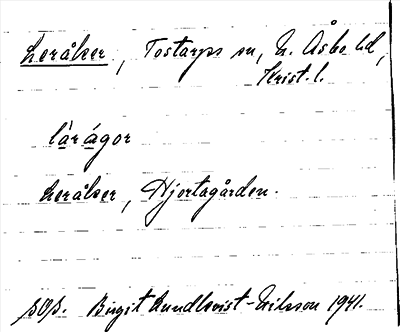 Leråker, Tostarps sn, N. Åsbo hd,
Krist. l.
làrágor
Leråker, Hjortagården.
SOS. Birgit Lundkvist-Nilsson 1941.